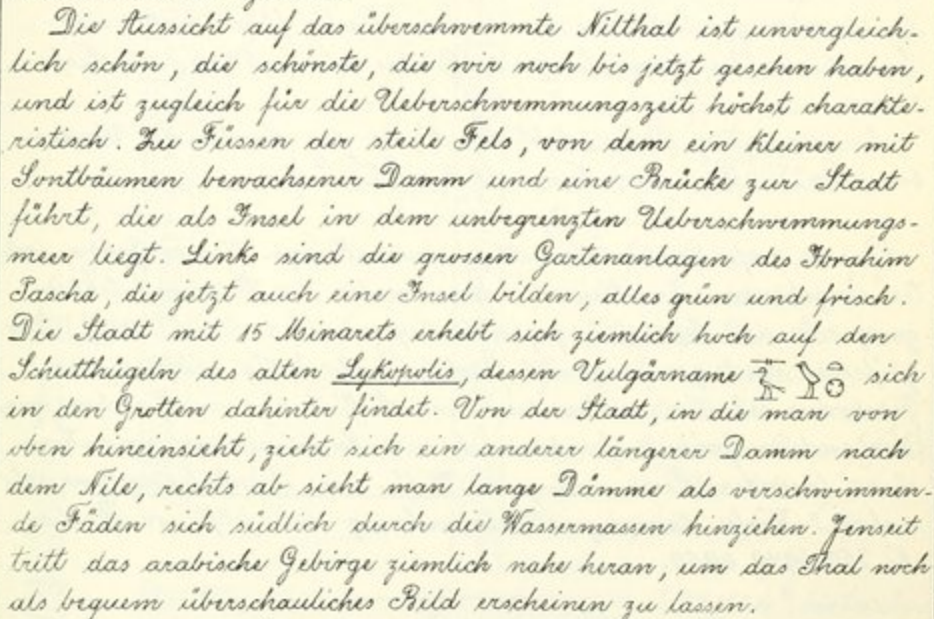 Die Aussicht auf das überschwemmte Nilthal ist unvergleich-
lich schön, die schönste, die wir noch bis jetzt gesehen haben,
und ist zugleich für die Ueberschwemmungszeit höchst charakte-
ristisch. Zu Füssen der steile Fels, von dem ein kleiner mit
Sontbäumen bewachsener Damm und eine Brücke zur Stadt
führt, die als Insel in dem unbegrenzten Ueberschwemmungs-
meer liegt. Links sind die grossen Gartenanlagen des Ibrahim
Pascha, die jetzt auch eine Insel bilden, alles grün und frisch.
Die Stadt mit 15 Minarets erhebt sich ziemlich hoch auf den
Schutthügeln des alten Lykopolis, dessen Vulgärname sich
in den Grotten dahinter findet. Von der Stadt, in die man von
oben hineinsieht, zieht sich ein anderer längerer Damm nach
dem Nile, rechts ab sieht man lange Dämme als verschwimmen-
de Fäden sich südlich durch die Wassermassen hinziehen. Jenseit
tritt das arabische Gebirge ziemlich nahe heran, um das Thal noch
als bequem überschauliches Bild erscheinen zu lassen.